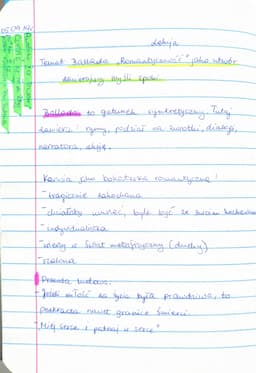 05.04.
Lekcja
Temat: Ballada „Romantyczność" jako utwór
myśli epoki.
Ballada to gatunek synkretyczny. Tutaj
zawiera: rymy, podział na zwrotki, dialogi,
narratora, akcję.
Karusia jako bohaterka romantyczna:
- tragicznie zakochana
- chciałaby umrzeć, byle być ze swoim kochankiem
- indywidualistka
- wierzy w świat metafizyczny (duchy)
- szalona
ludowa:
- Jeżeli miłość za życia była prawdziwa, to
przekracza nawet granice śmierci
- "Miej serce i patrzaj w serce"